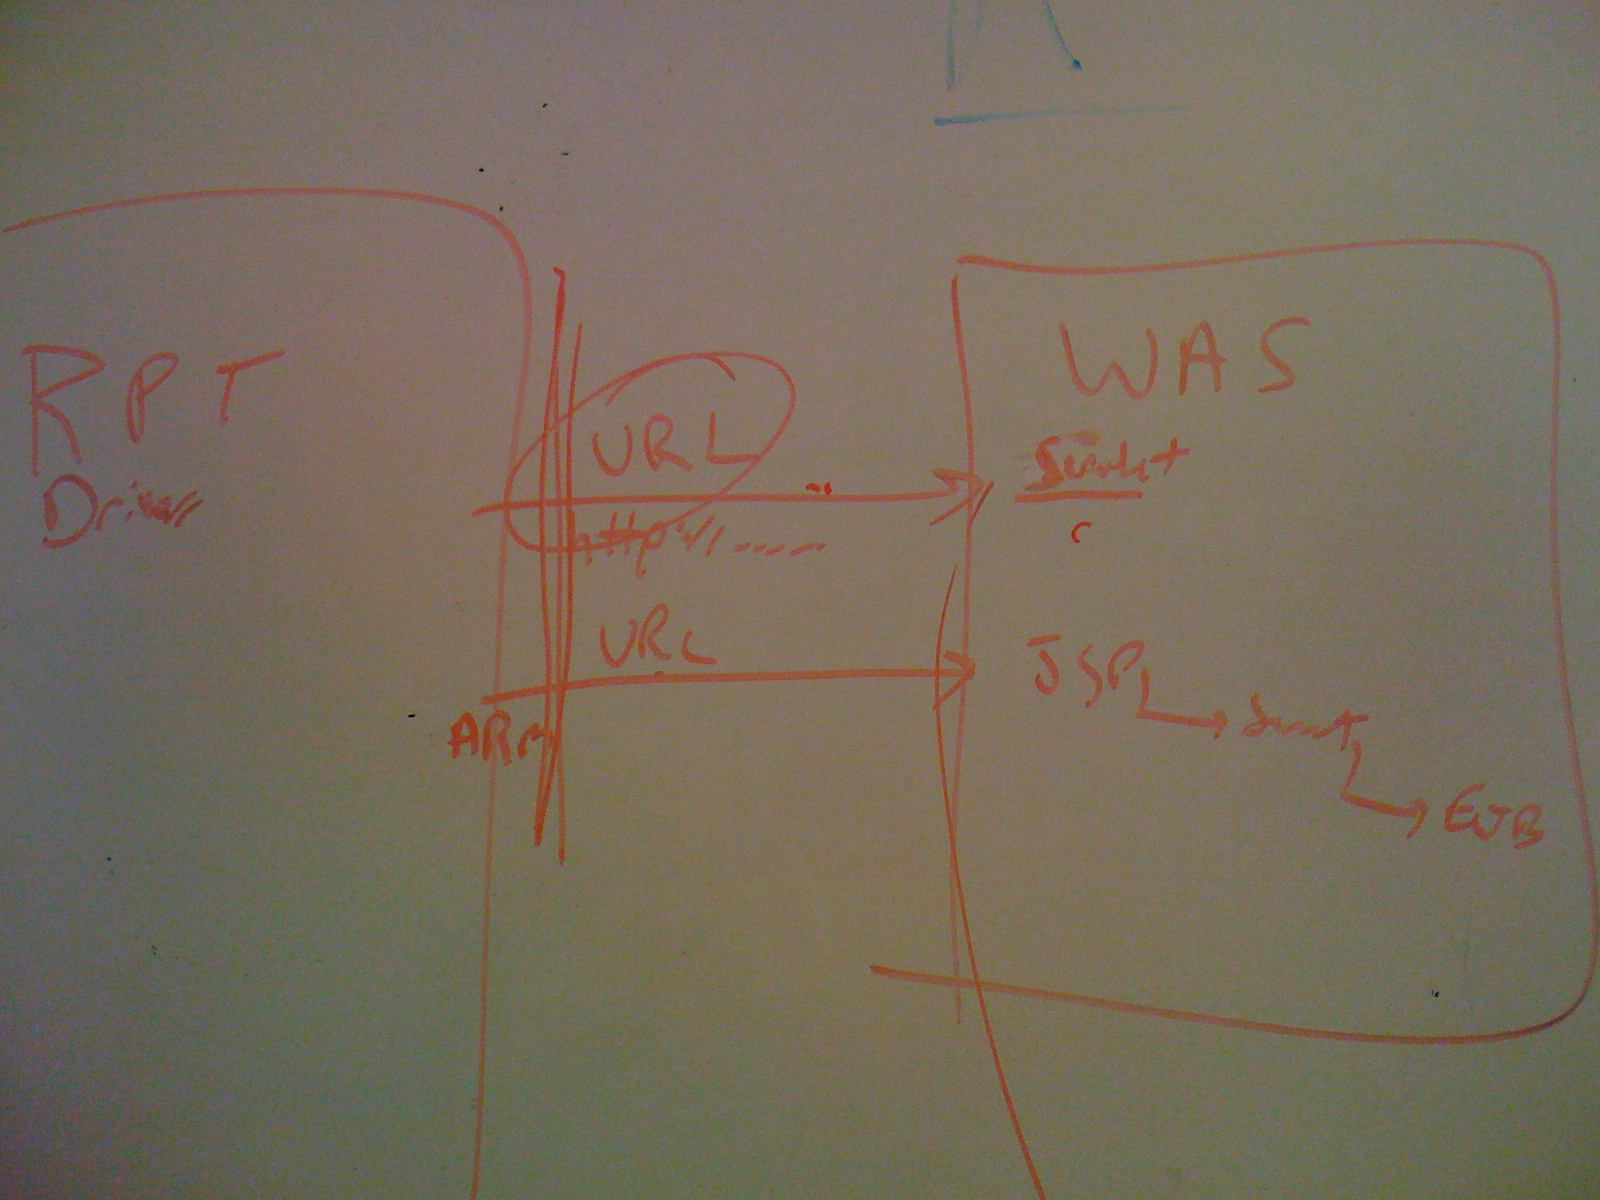 RPT
Driver
URL
http://.....
URL
ARM
WAS
Servlet
JSP
EJB